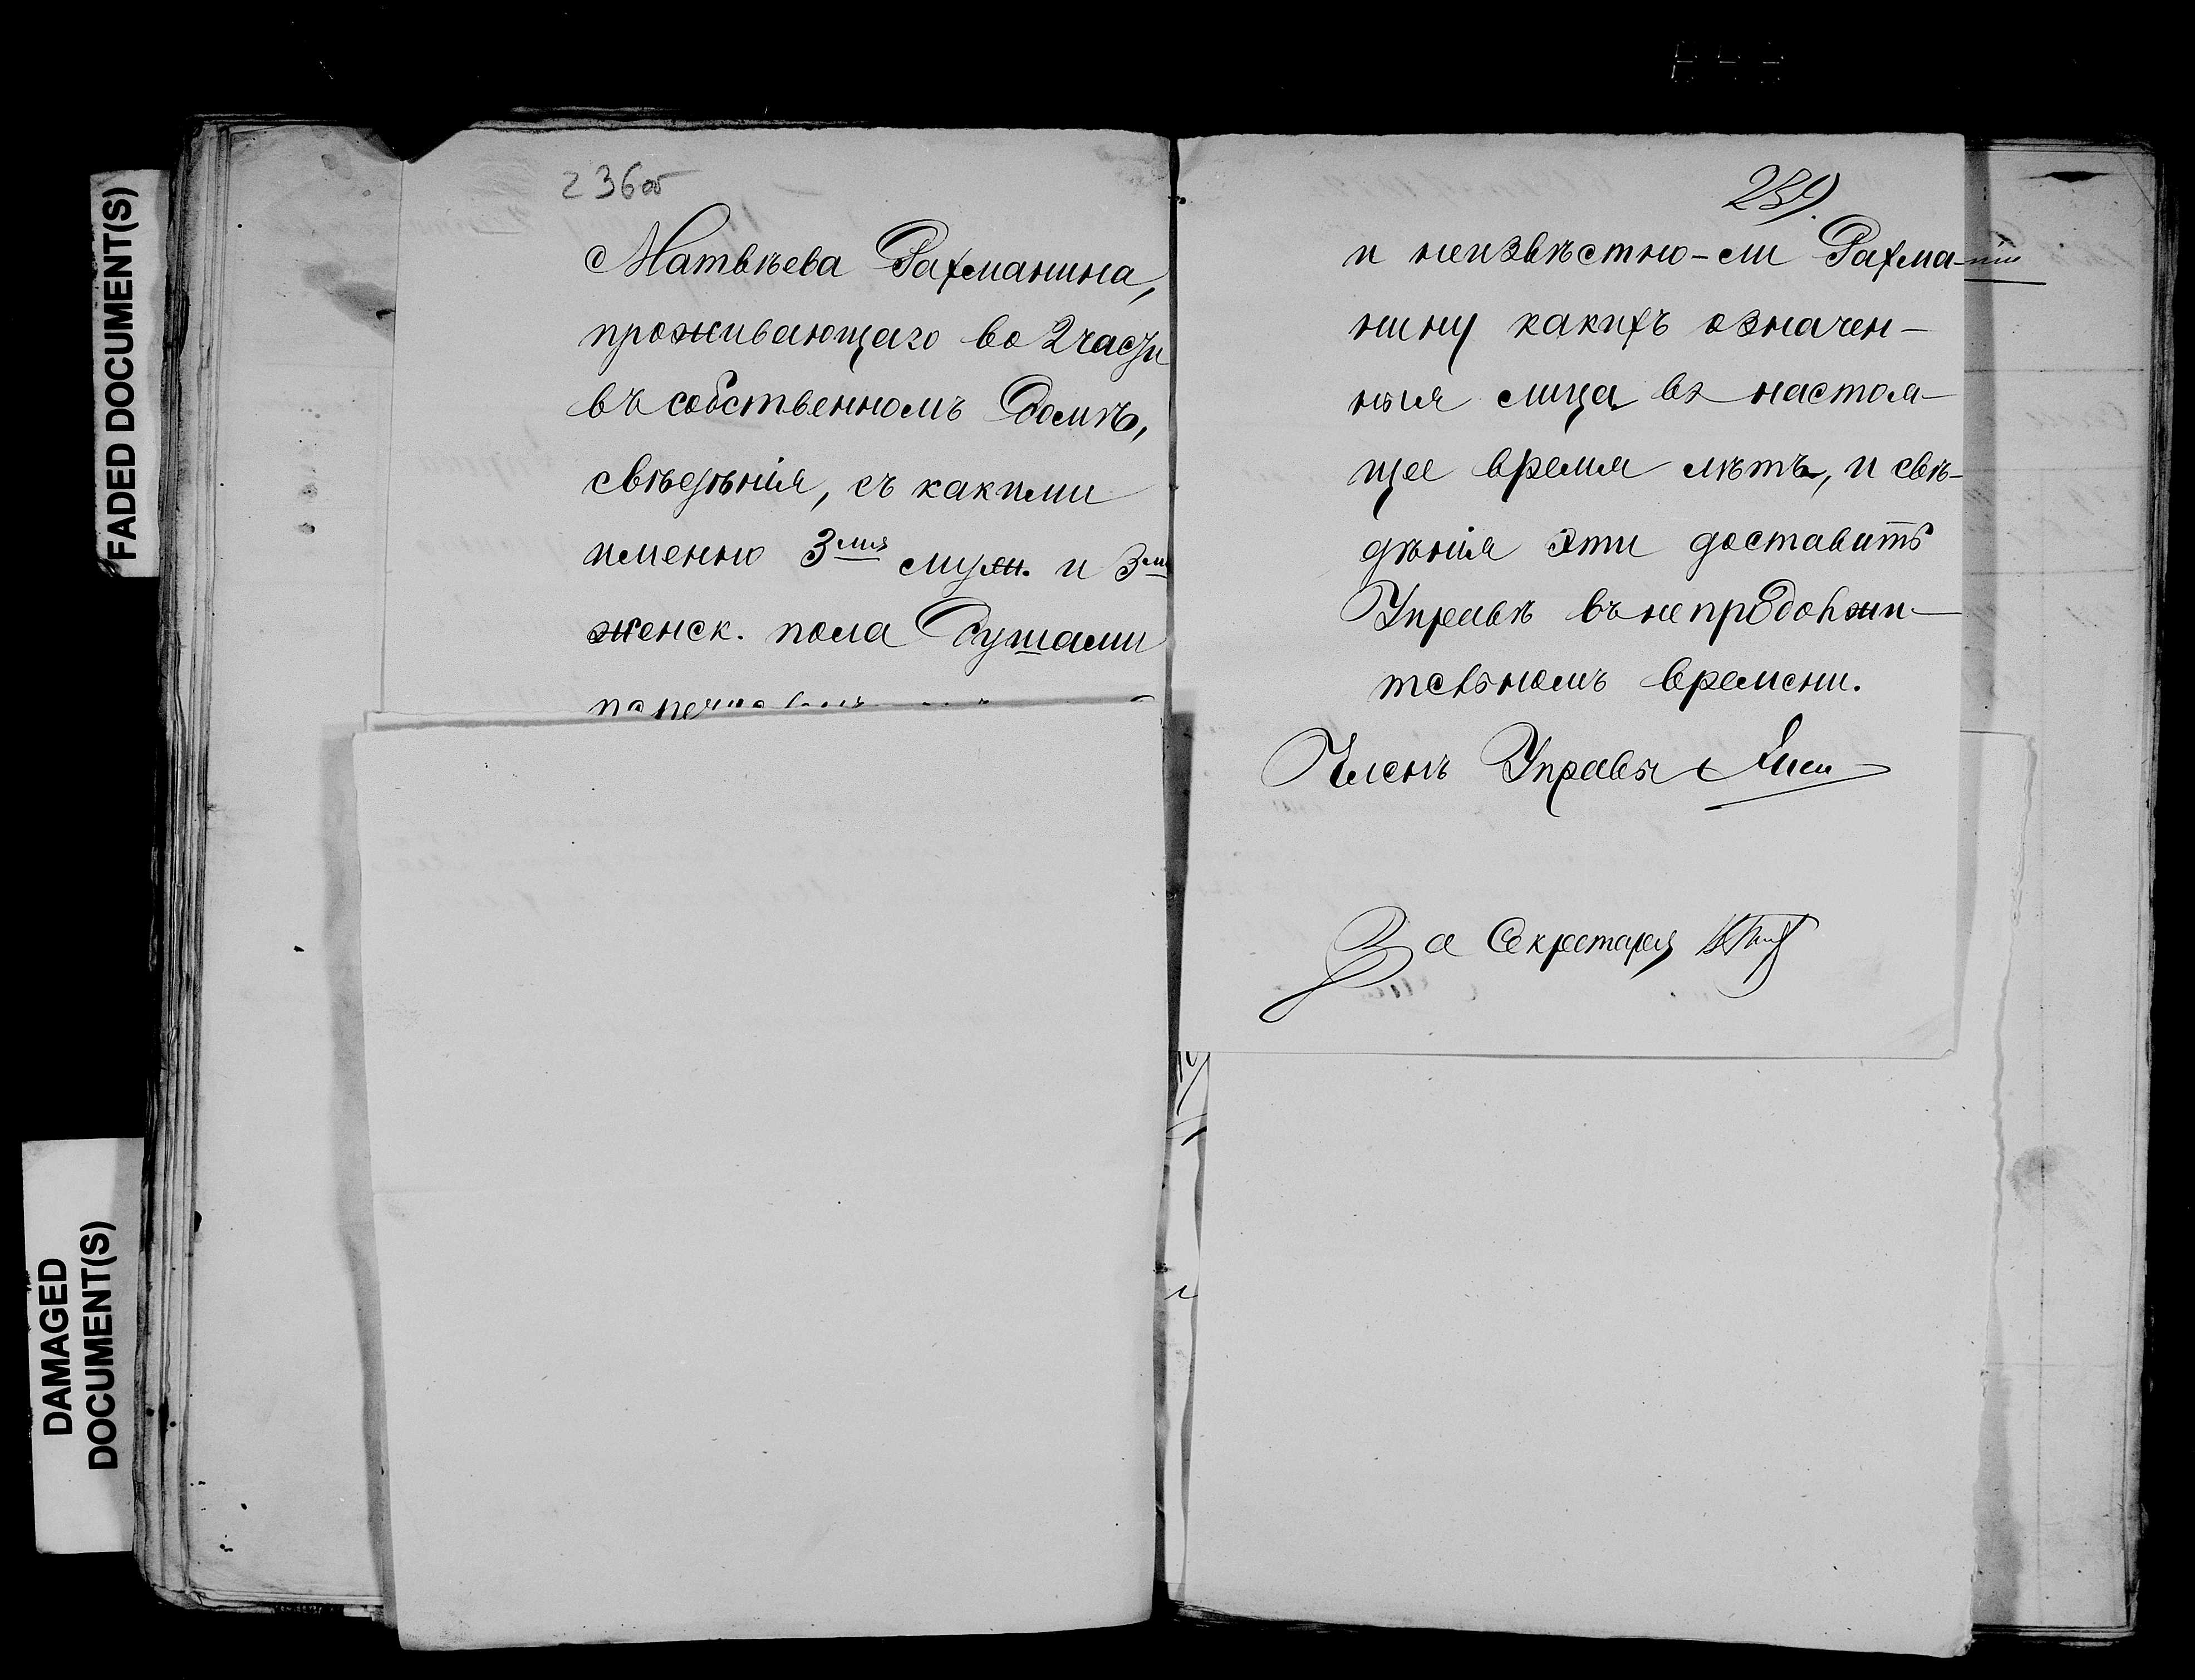 FADED DOCUMENT(S)
DAMAGED
DOCUMENT(S)
236об
Матвѣева Рахманина,
проживающаго во 2 части
въ собственномъ домѣ,
свѣдѣнія, съ какими
именно 3мя муж. и 3мя
женск. пола душами
239.
и неизвѣстно-ли Рахма-
нину какихъ означен-
ныя лица въ настоя-
щее время лѣтъ, и свѣ-
дѣнія эти доставить
Управѣ въ непродолжи-
тельномъ времени.
Членъ Управы
За Секретаря